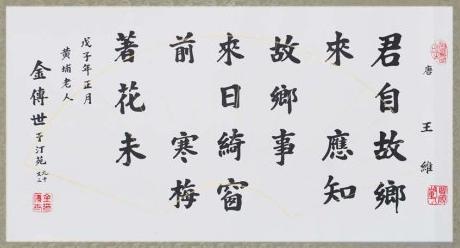 唐 王維
君自故鄉
來 應知
故鄉事
來日綺窗
前 寒梅
著花未
戊子年正月
黃埔老人
金傳世